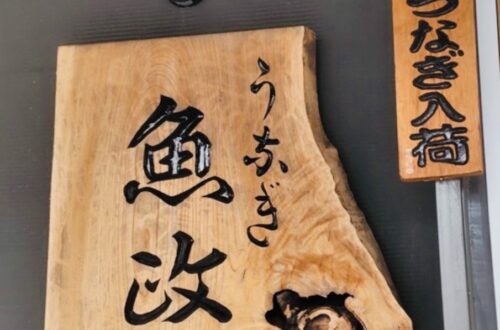 うなぎ
魚政
うなぎ入荷